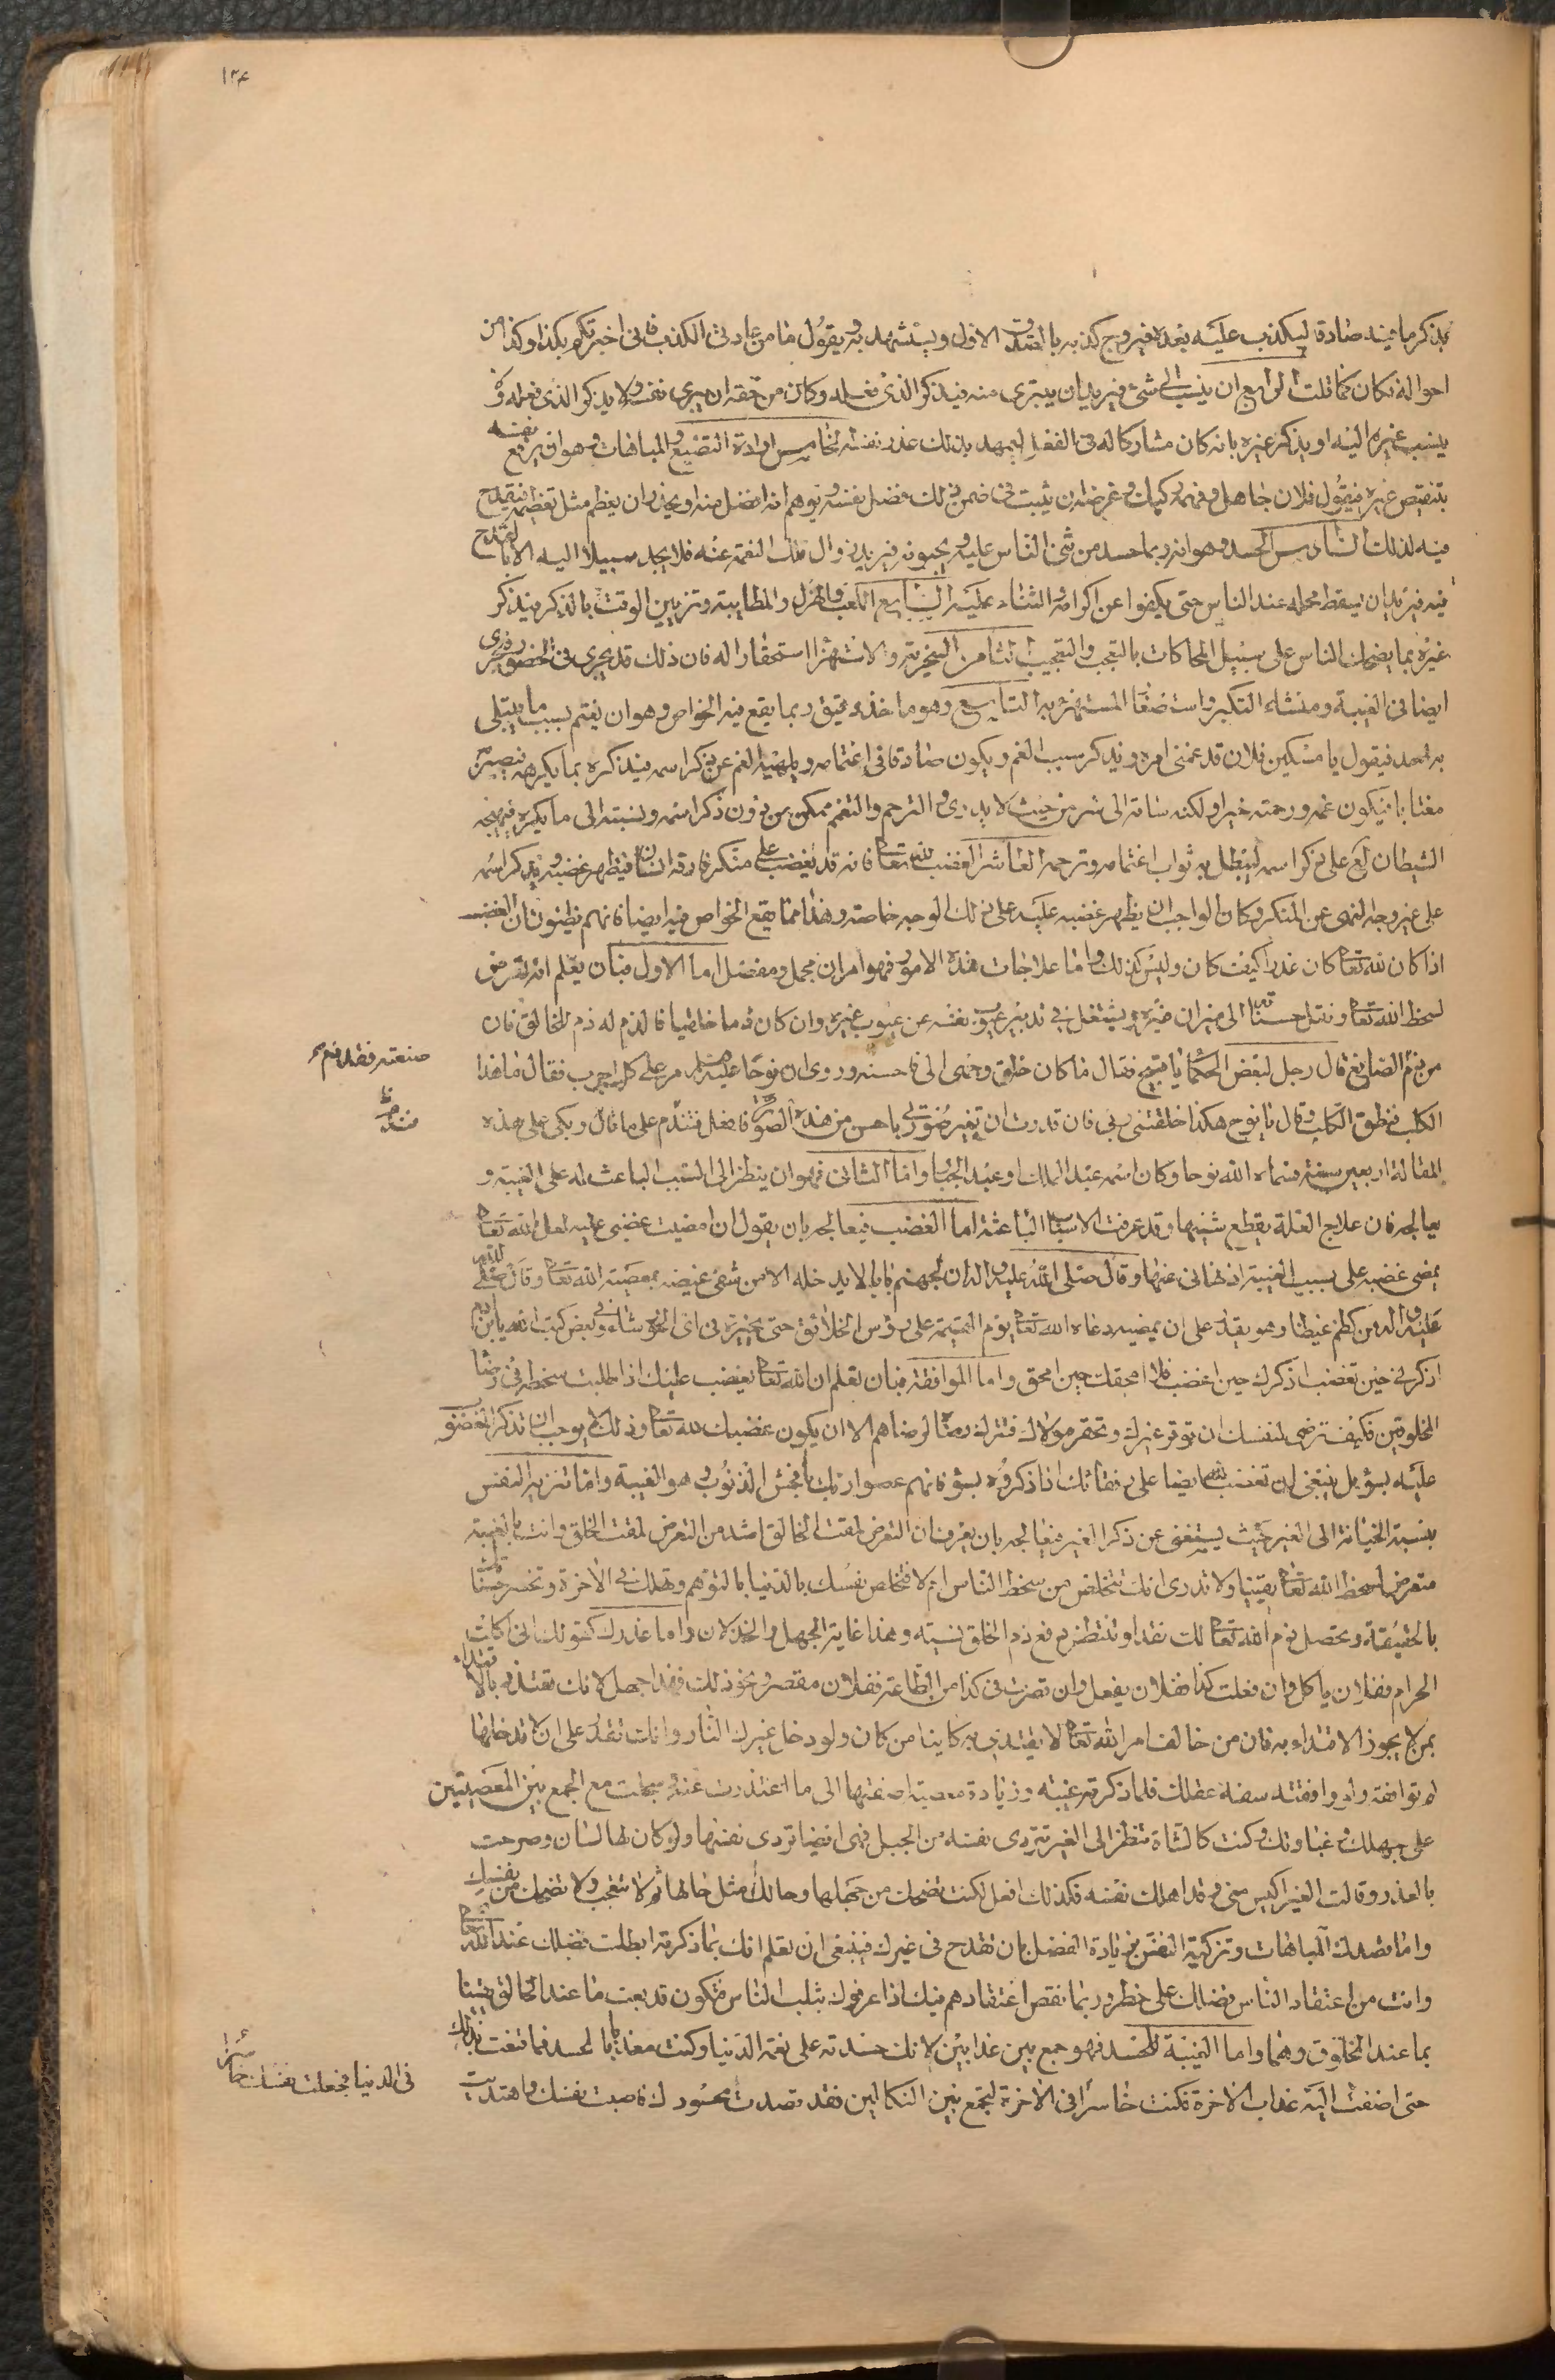 ١٢٤
بذكر ما فيه صادقا ليكذب عليه بعده فيروج كذبه بالصدق الاول ويستشهد به ويقول ما من عادتي الكذب فاني اخبرتكم بكذا وكذا من
احواله فكان كما قلت الرابع ان ينسب الى شئ فيريد ان يتبرى منه فيذكر الذي فعله وكان من حقه ان يبرى نفسه ولا يذكر الذي فعله و
ينسب غيره اليه او يذكر غيره بانه كان مشاركا له في الفعل ليمهد بذلك عذر نفسه الخامس ارادة التصنع والمباهات وهو ان يرفع نفسه
بتنقيص غيره فيقول فلان جاهل وفهمه ركيك وغرضه ان يثبت في ضمن ذلك فضل نفسه ويوهم انه افضل منه او يحذر ان يعظم مثل تعظيمه فيقدح
فيه لذلك السادس الحسد وهو انه ربما حسد من يثنى الناس عليه ويحبونه فيريد زوال تلك النعمة عنه فلا يجد سبيلا اليه الا بالقدح
فيه فيريد ان يسقط محله عند الناس حتى يكفوا عن اكرامه والثناء عليه السابع اللعب والهزل والمطايبة وتزيين الوقت بالذكر فيذكر
غيره بما يضحك الناس على سبيل المحاكات بالتعجب والتعجيب الثامن السخرية والاستهزاء استحقارا له فان ذلك قد يجرى في الحضور ويجرى
ايضا في الغيبة ومنشاء التكبر واستصغار المستهزء به التاسع وهو ماخذ دقيق ربما يقع فيه الخواص وهو ان يغتم بسبب ما يبتلى
به احد فيقول يا مسكين فلان قد غمني امره ويذكر سبب الغم ويكون صادقا في اغتمامه ويلهيه الغم عن ذكر اسمه فيذكره بما يكرهه فيصير
مغتابا فيكون غمه ورحمته خيرا ولكنه ساقه الى شر من حيث لا يدري والترحم والتغمم ممكن من دون ذكر اسمه ونسبته الى ما يكره فيهيجه
الشيطان على ذكر اسمه ليبطل به ثواب اغتمامه وترحمه العاشر الغضب لله تعالى فانه قد يغضب على منكر قارفه انسان فيظهر غضبه ويذكر اسمه
على غير وجه النهى عن المنكر وكان الواجب ان يظهر غضبه عليه على ذلك الوجه خاصة وهذا مما يقع الخواص فيه ايضا فانهم يظنون ان الغضب
اذا كان لله تعالى كان عذرا كيف كان وليس كذلك واما علاجات هذه الامور فهو امران مجمل ومفصل اما الاول فبان يعلم انه تعرض
لسخط الله تعالى ونقل حسناته الى ميزان غيره ويشتغل في تدبير عيوب نفسه عن عيوب غيره وان كان ذما خلقيا فالذم له ذم للخالق فان
من ذم الصانع قال رجل لبعض الحكماء يا قبيح فقال ما كان خلق وجهى الى فاحسنه وروى ان نوحا عليه السلام مر على كلب اجرب فقال ما هذا
صنعته فقد ذم
الكلب فنطق الكلب وقال يا نوح هكذا خلقني ربي فان قدرت ان تغير صورتي باحسن من هذه الصورة فافعل فتندم على ما قال وبكى على هذه
المقالة اربعين سنة فسماه الله نوحا وكان اسمه عبد الملك او عبد الجبار واما الثاني فهو ان ينظر الى السبب الباعث له على الغيبة و
يعالجه فان علاج العلة بقطع سببها وقد عرفت الاسباب الباعثة اما الغضب فيعالجه بان يقول ان امضيت غضبى عليه لعل الله تعالى
يمضى غضبه على بسبب الغيبة اذ نهانى عنها وقال صلى الله عليه واله ان لجهنم بابا لا يدخله الا من شفى غيضه بمعصية الله تعالى وقال صلى الله
عليه واله من كظم غيظا وهو يقدر على ان يمضيه دعاه الله تعالى يوم القيمة على رؤس الخلائق حتى يخيره في اى الحور شاء وفي بعض كتب الله يابن ادم
اذكرنى حين تغضب اذكرك حين اغضب فلا امحقك حين امحق واما الموافقة فبان تعلم ان الله تعالى يغضب عليك اذا طلبت سخطه في رضا
المخلوقين فكيف ترضى لنفسك ان توقر غيرك وتحقر مولاك فتترك رضاه لرضاهم الا ان يكون غضبك لله تعالى وذلك لا يوجب ان تذكر المغضوب
عليه بسوء بل ينبغى ان تغضب لله ايضا على رفقائك اذا ذكروه بسوء فانهم عصوا ربك بافحش الذنوب وهو الغيبة واما تنزيه النفس
بنسبة الخيانة الى الغير حيث يستغنى عن ذكر الغير فيعالجه بان يعرف ان التعرض لمقت الخالق اشد من التعرض لمقت الخلق وانت بالغيبة
متعرض لسخط الله تعالى يقينا ولا تدرى انك تتخلص من سخط الناس ام لا فتخلص نفسك بالدنيا بالتوهم وتهلك في الاخرة وتخسر حسناتك
بالحقيقة وتحصل ذم الله تعالى لك نقدا وتنتظر دفع ذم الخلق نسية وهذا غاية الجهل والخذلان واما عذرك كقولك انى اكلت
الحرام ففلان ياكل وان فعلت كذا ففلان يفعل وان قصرت في كذا من الطاعة ففلان مقصر ونحو ذلك فهذا جهل لانك تعتذر بالاقتداء
بمن لا يجوز الاقتداء به فان من خالف امر الله تعالى لا يقتدى به كائنا من كان ولو دخل غيرك النار وانت تقدر على ان لا تدخلها
لم توافقه ولو وافقته سفه عقلك فلما ذكرته غيبته وزيادة معصية اضفتها الى ما اعتذرت عنه وسجلت مع الجمع بين المعصيتين
على جهلك وغباوتك وكنت كالشاة تنظر الى العنز تردى نفسه من الجبل فهى ايضا تردى نفسها ولو كان لها لسان وصرحت
بالعذر وقالت العنز اكيس منى وقد اهلك نفسه فكذلك افعل لكنت تضحك من جهلها وحالك مثل حالها ثم لا تتعجب ولا تضحك من نفسك
واما قصدك المباهات وتزكية النفس بزيادة الفضل بان تقدح في غيرك فينبغى ان تعلم انك بما ذكرته ابطلت فضلك عند الله تعالى
وانت من اعتقاد الناس فضلك على خطر وربما نقص اعتقادهم فيك اذا عرفوك بثلب الناس فتكون قد بعت ما عند الخالق يقينا
بما عند المخلوق وهما واما الغيبة للحسد فهو جمع بين عذابين لانك حسدته على نعمة الدنيا وكنت معذبا بالحسد فما قنعت بذلك
حتى اضفت اليه عذاب الاخرة فكنت خاسرا في الاخرة لتجمع بين النكالين فقد قصدت محسودك فاصبت نفسك واهديت
في الدنيا فجعلت نفسك خاسرا